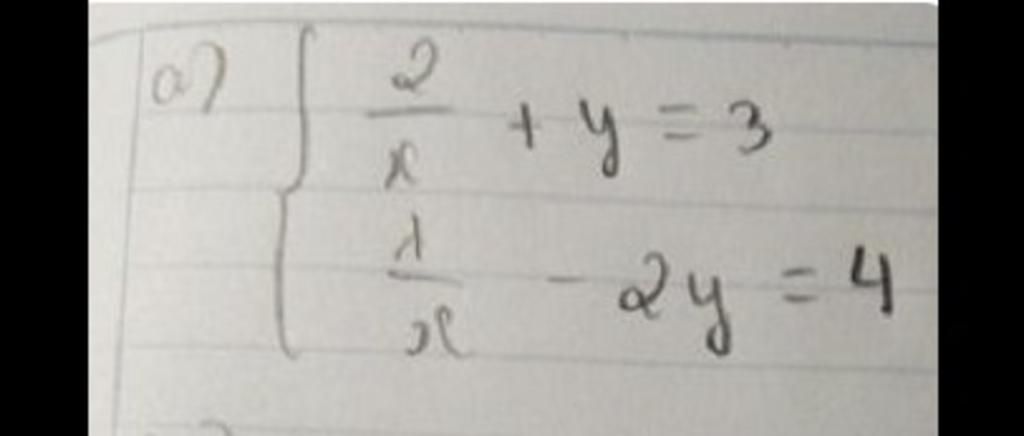 a) { 2/x + y = 3
1/x - 2y = 4